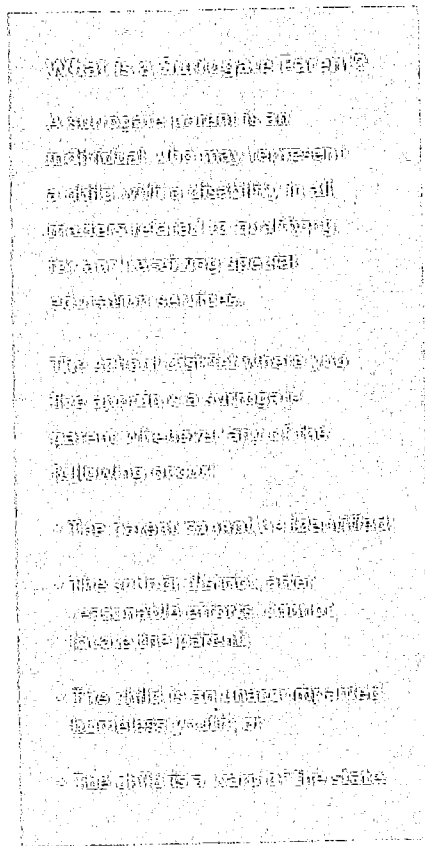 What is a Surrogate Parent?
A surrogate parent is an
individual who may represent
a child with a disability in all
matters related to qualifying
for and receiving special
education services.
The school district where you
live appoints a surrogate
parent whenever any of the
following occur:
- The parent cannot be identified
- The school district, after
reasonable efforts, cannot
locate the parent
- The child is an unaccompanied
homeless youth, or
- The child is a ward of the state